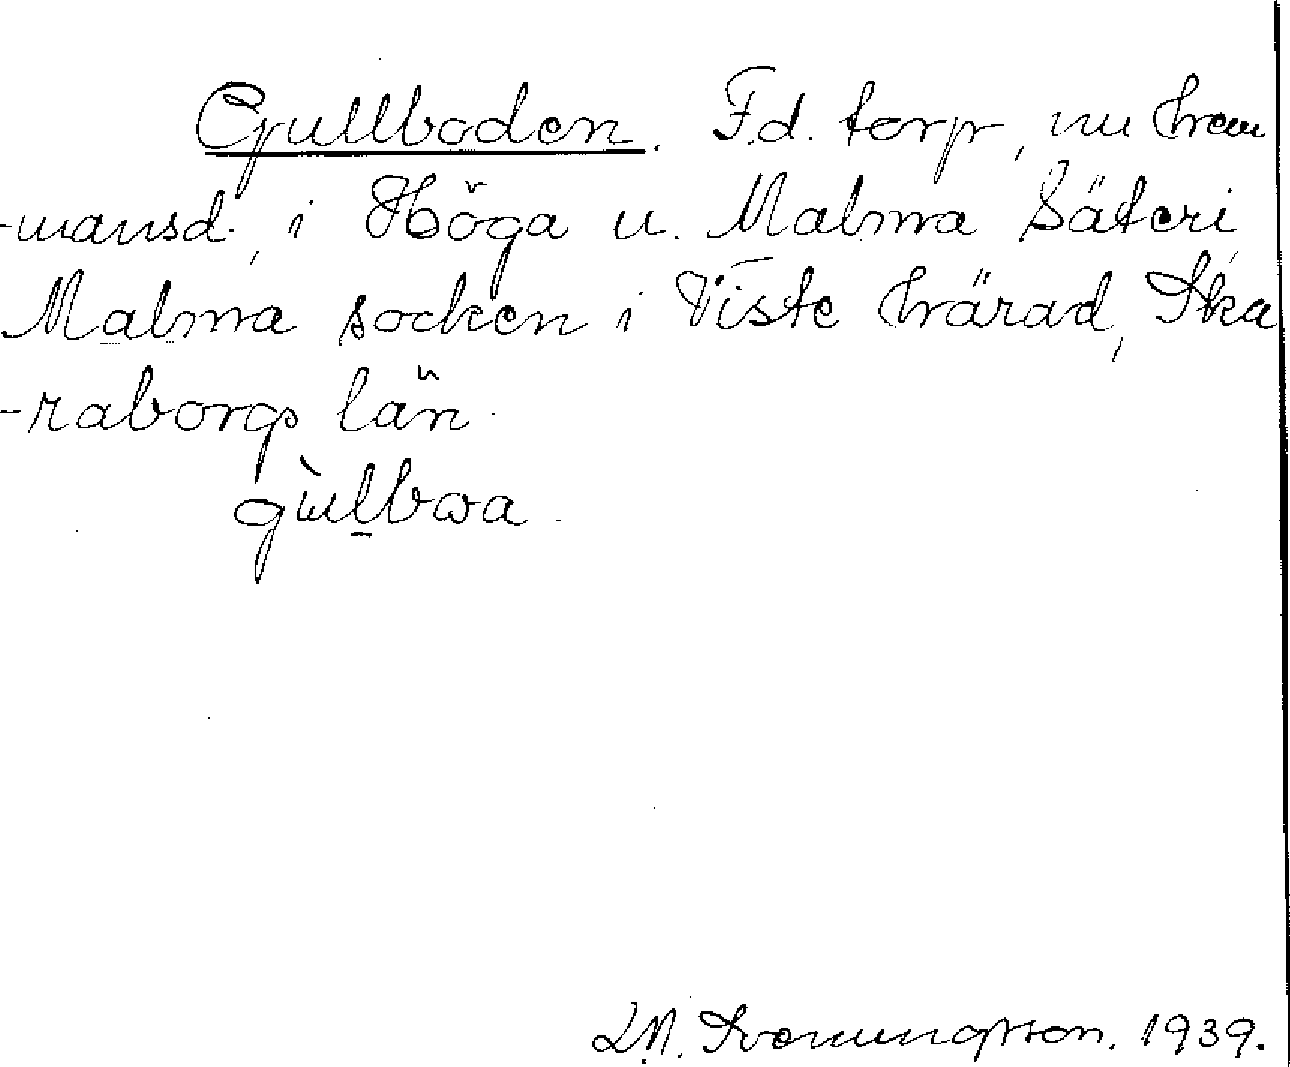 Gullboden. F.d. torp, nu hem
-mansd., i Höga u. Malma Säteri,
Malma socken i Viste härad, Ska
-raborgs län.
gùlbωa.
L.M. Svenungsson. 1939.